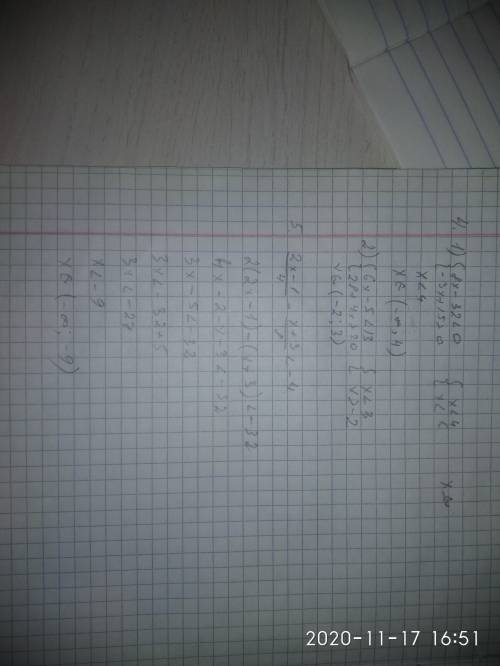 4. 1) { 8x - 32 < 0 { x < 4
{ -3x + 15 > 0 { x <
x < 4
x ∈ (-∞; 4)
2) { 6x - 5 < 13 { x < 3
{ 2x + 4 > 0 { x > -2
x ∈ (-2; 3)
5. (2x - 1)/4 - (x + 3)/8 < -4
2(2x - 1) - (x + 3) < -32
4x - 2 - x - 3 < -32
3x - 5 < -32
3x < -32 + 5
3x < -27
x < -9
x ∈ (-∞; -9)
2020-11-17 16:51